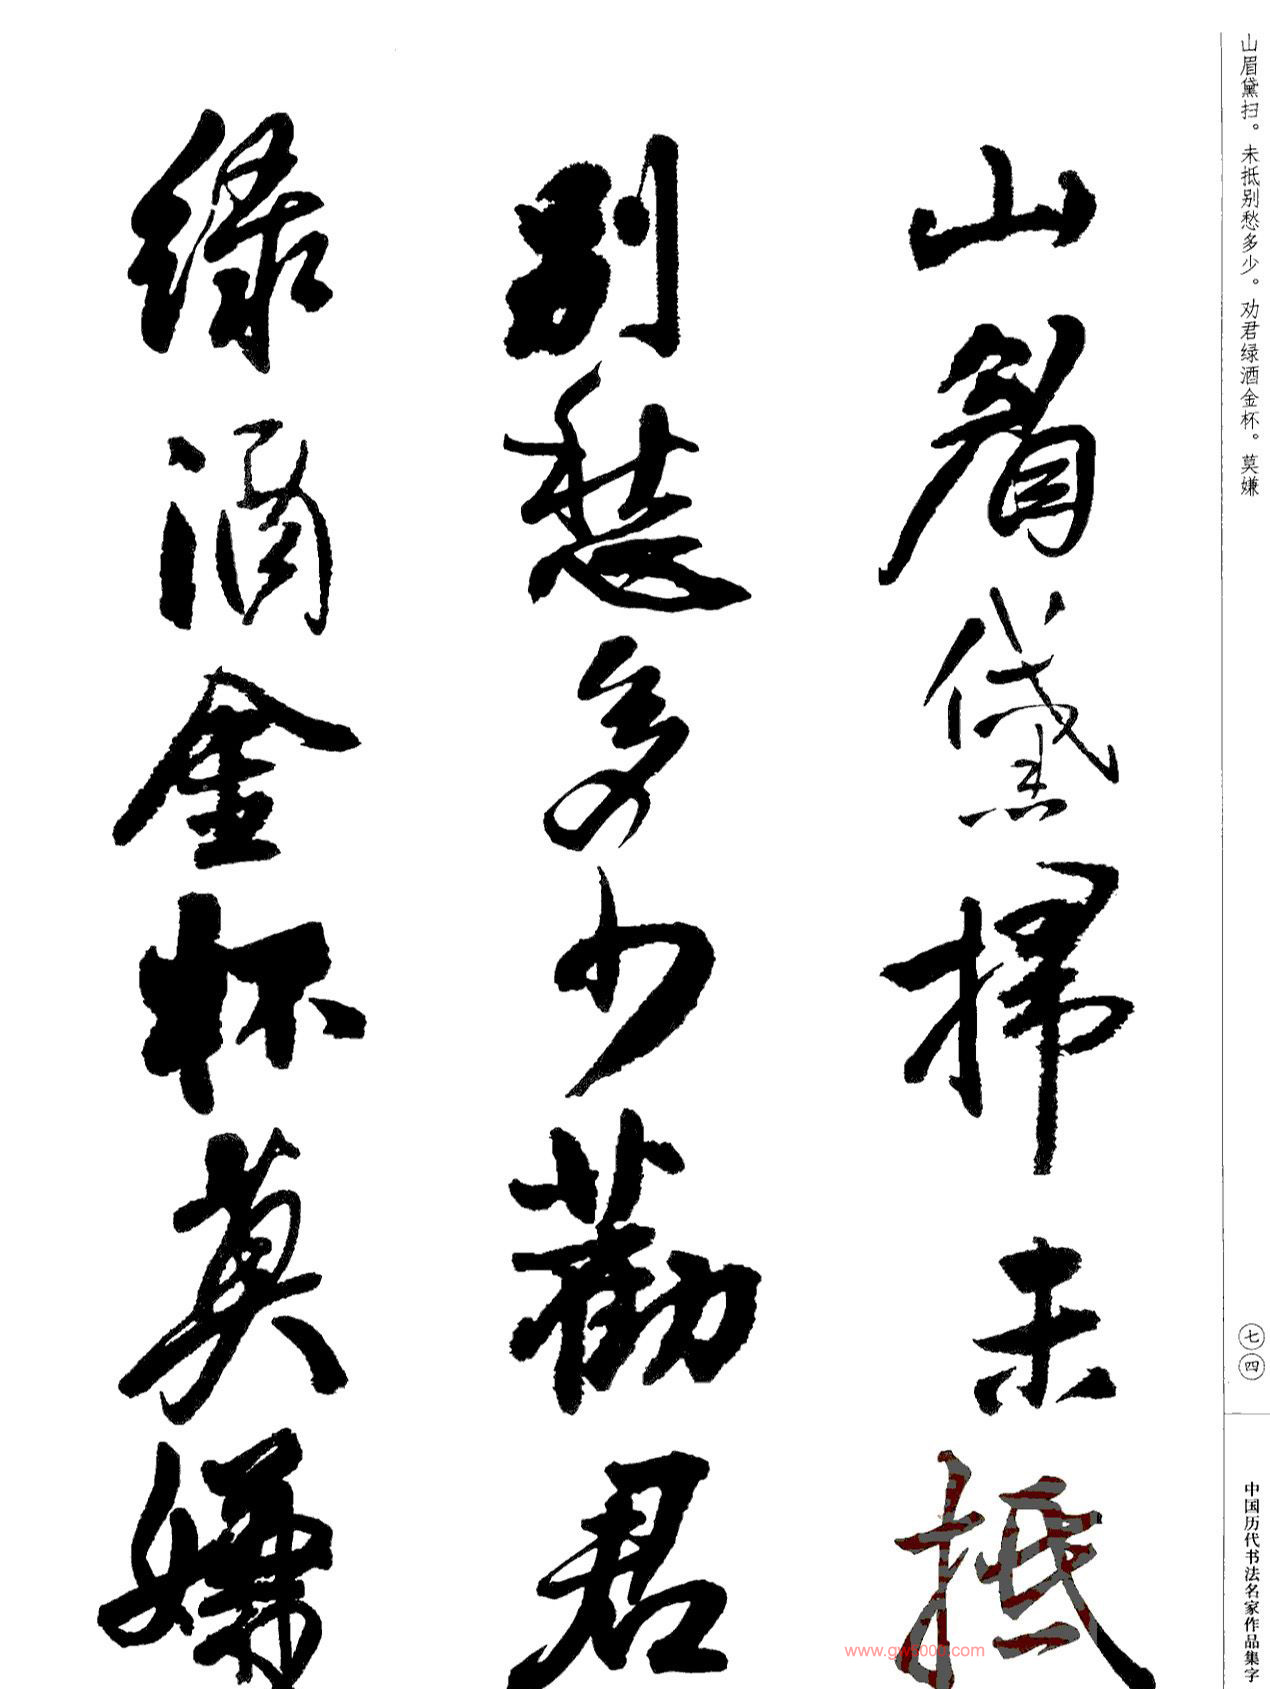 山眉黛扫。未抵别愁多少。劝君绿酒金杯。莫嫌
山眉黛掃未抵
别愁多少勸君
绿酒金杯莫嫌
七四
中国历代书法名家作品集字